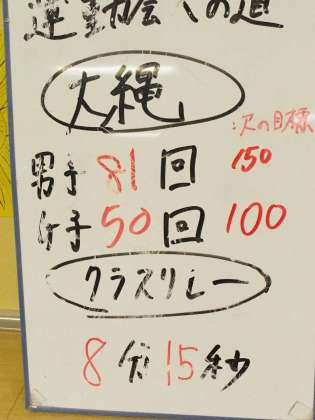 運動会への道
大縄
次の目標
男子81回 150
女子50回 100
クラスリレー
8分15秒